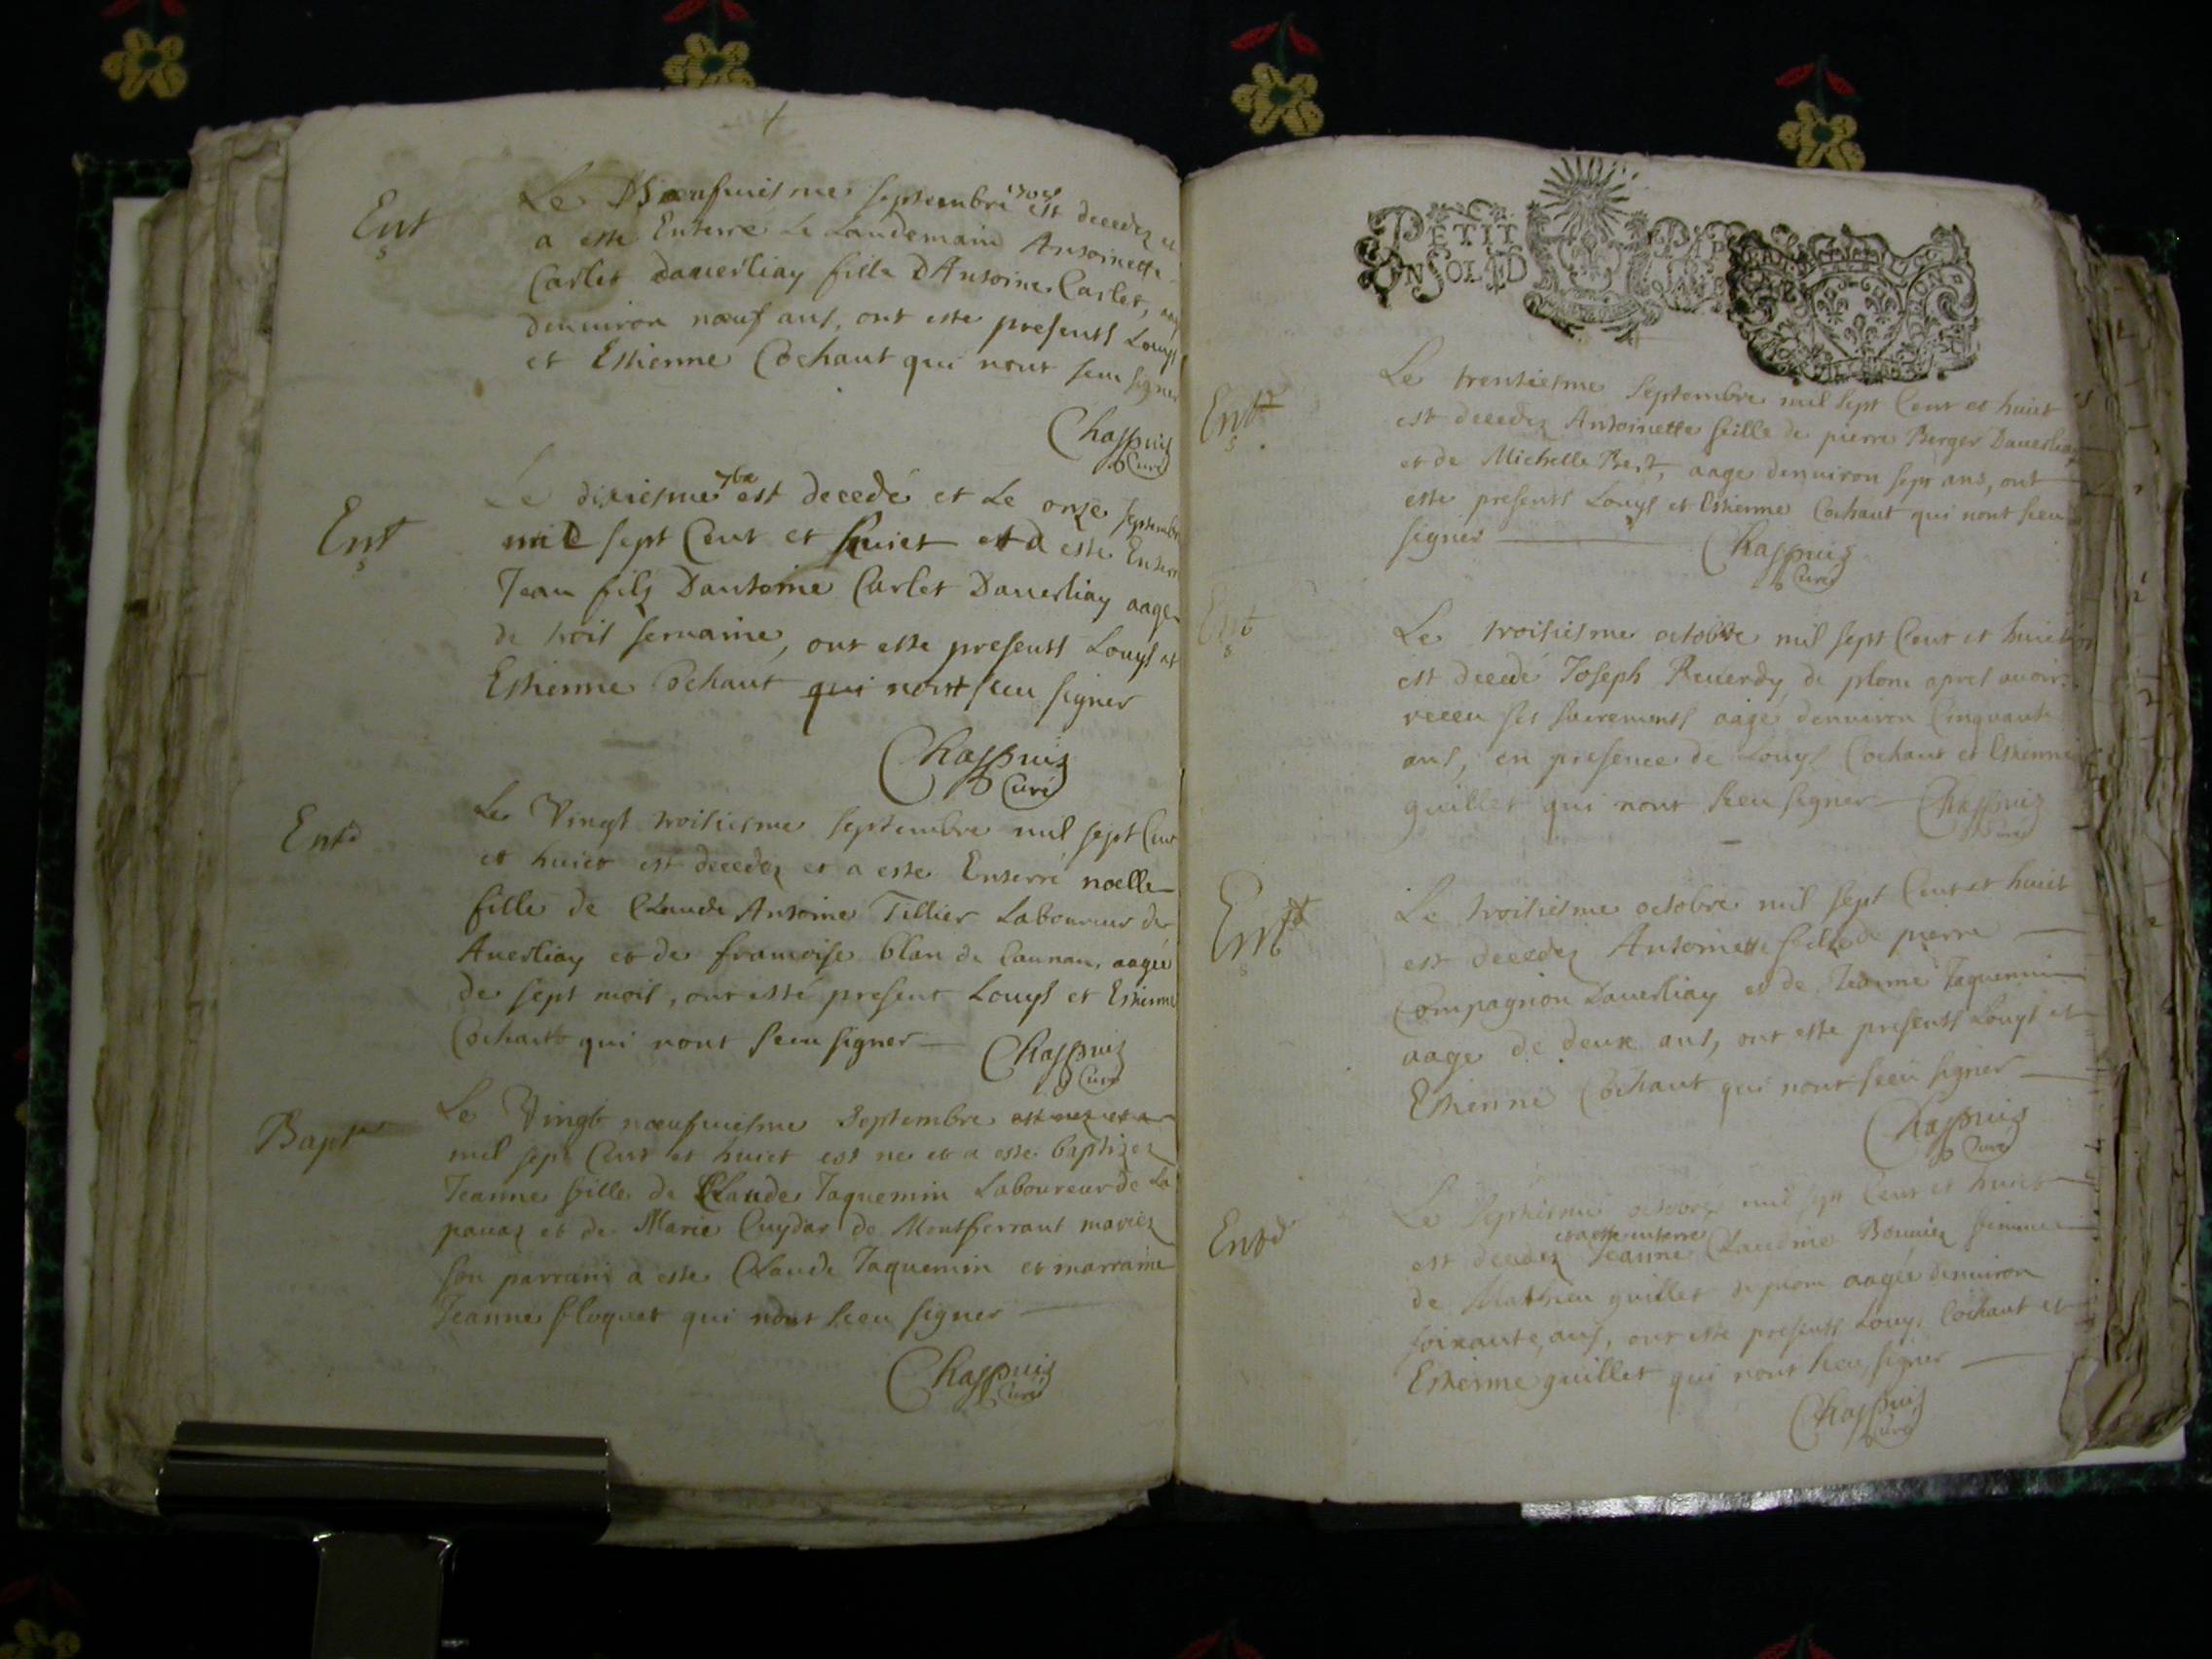 Ent
Le Noeufuiesme septembre 1708 est decedez et
a esté Enterré Le Landemain Antoinette
Carlet dauerliay fille DAntoine Carlet, aag
denuiron noeuf ans, ont esté presents Louys
et Estienne Cochaut qui nont sceu signer
Chappuis
Curé
Ent
Le dixiesme 7bre est decedé et Le onze septembre
mil sept Cent et huict et a esté Enterr
Jean filz Dantoine Carlet Dauerliay aagez
de trois semaine, ont esté presents Louys et
Estienne Cochaut qui nont sceu signer
Chappuis
Curé
Entd
Le Vingt troisiesme septembre mil sept Cent
et huict est decedez et a esté Enterré noelle
fille de Claude Antoine Tillier Laboureur de
Auerliay et de francoise blan de Caunan, aageé
de sept mois, ont esté present Louys et Estienne
Cochaut qui nont sceu signer
Chappuis
Curé
Bapt
Le Vingt noeufuiesme Septembre est nez et a
mil sept Cent et huict est ne et a esté baptizez
Jeanne fille de Claude Jaquemin Laboureur de La
pauaz et de Marie Cuydar de Montferrant mariez
son parrain a esté Claude Jaquemin et marraine
Jeanne floquet qui nont sceu signer
Chappuis
Curé
PETIT PAP
UN SOL LE D
Ent
Le trentiesme Septembre mil sept Cent et huict
est decedez Antoinette fille de pierre Berger Dauerliay
et de Michelle aage denuiron sept ans, ont
esté presents Louys et Estienne Cochaut qui nont sceu
signer
Chappuis
Curé
Ent
Le troisiesme octobre mil sept Cent et huict
est decedé Joseph Reuerdy de plom apres auoir
receu ses sacrements aagé denuiron Cinquante
ans, en presence de Louys Cochaut et Estienne
guillet qui nont sceu signer
Chappuis
Curé
Ent
Le troisiesme octobre mil sept Cent et huict
est decedez Antoinette fille de pierre
Compagnon Dauerliay et de Jeanne Jaquemin
aage de deux ans, ont esté presents Louys et
Estienne Cochaut qui nont sceu signer
Chappuis
Curé
Entd
Le septiesme octobre mil sept Cent et huict
est decedez et a esté enterré Jeanne Claudine Bonniez femme
de Mathieu guillet de plom aageé denuiron
soixante ans, ont esté presents Louys Cochaut et
Estienne guillet qui nont sceu signer
Chappuis
Curé